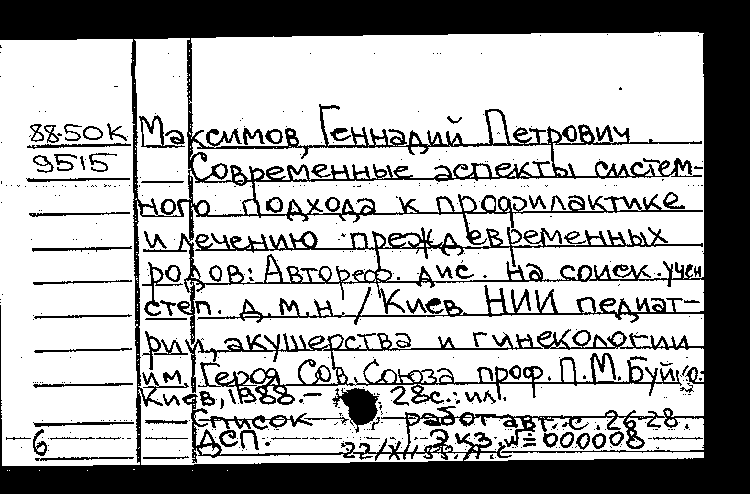 88-50К Максимов, Геннадий Петрович.
9515 Современные аспекты систем-
ного подхода к профилактике
и лечению преждевременных
родов: Автореф. дис. на соиск. учен
степ. д.м.н. / Киев. НИИ педиат-
рии, акушерства и гинекологии
им. Героя Сов. Союза проф. П.М. Буйко.
Киев, 1988. - 28с.: ил.
Список работ авт.: с. 26-28.
6 ДСП. 2 кз. №=000008